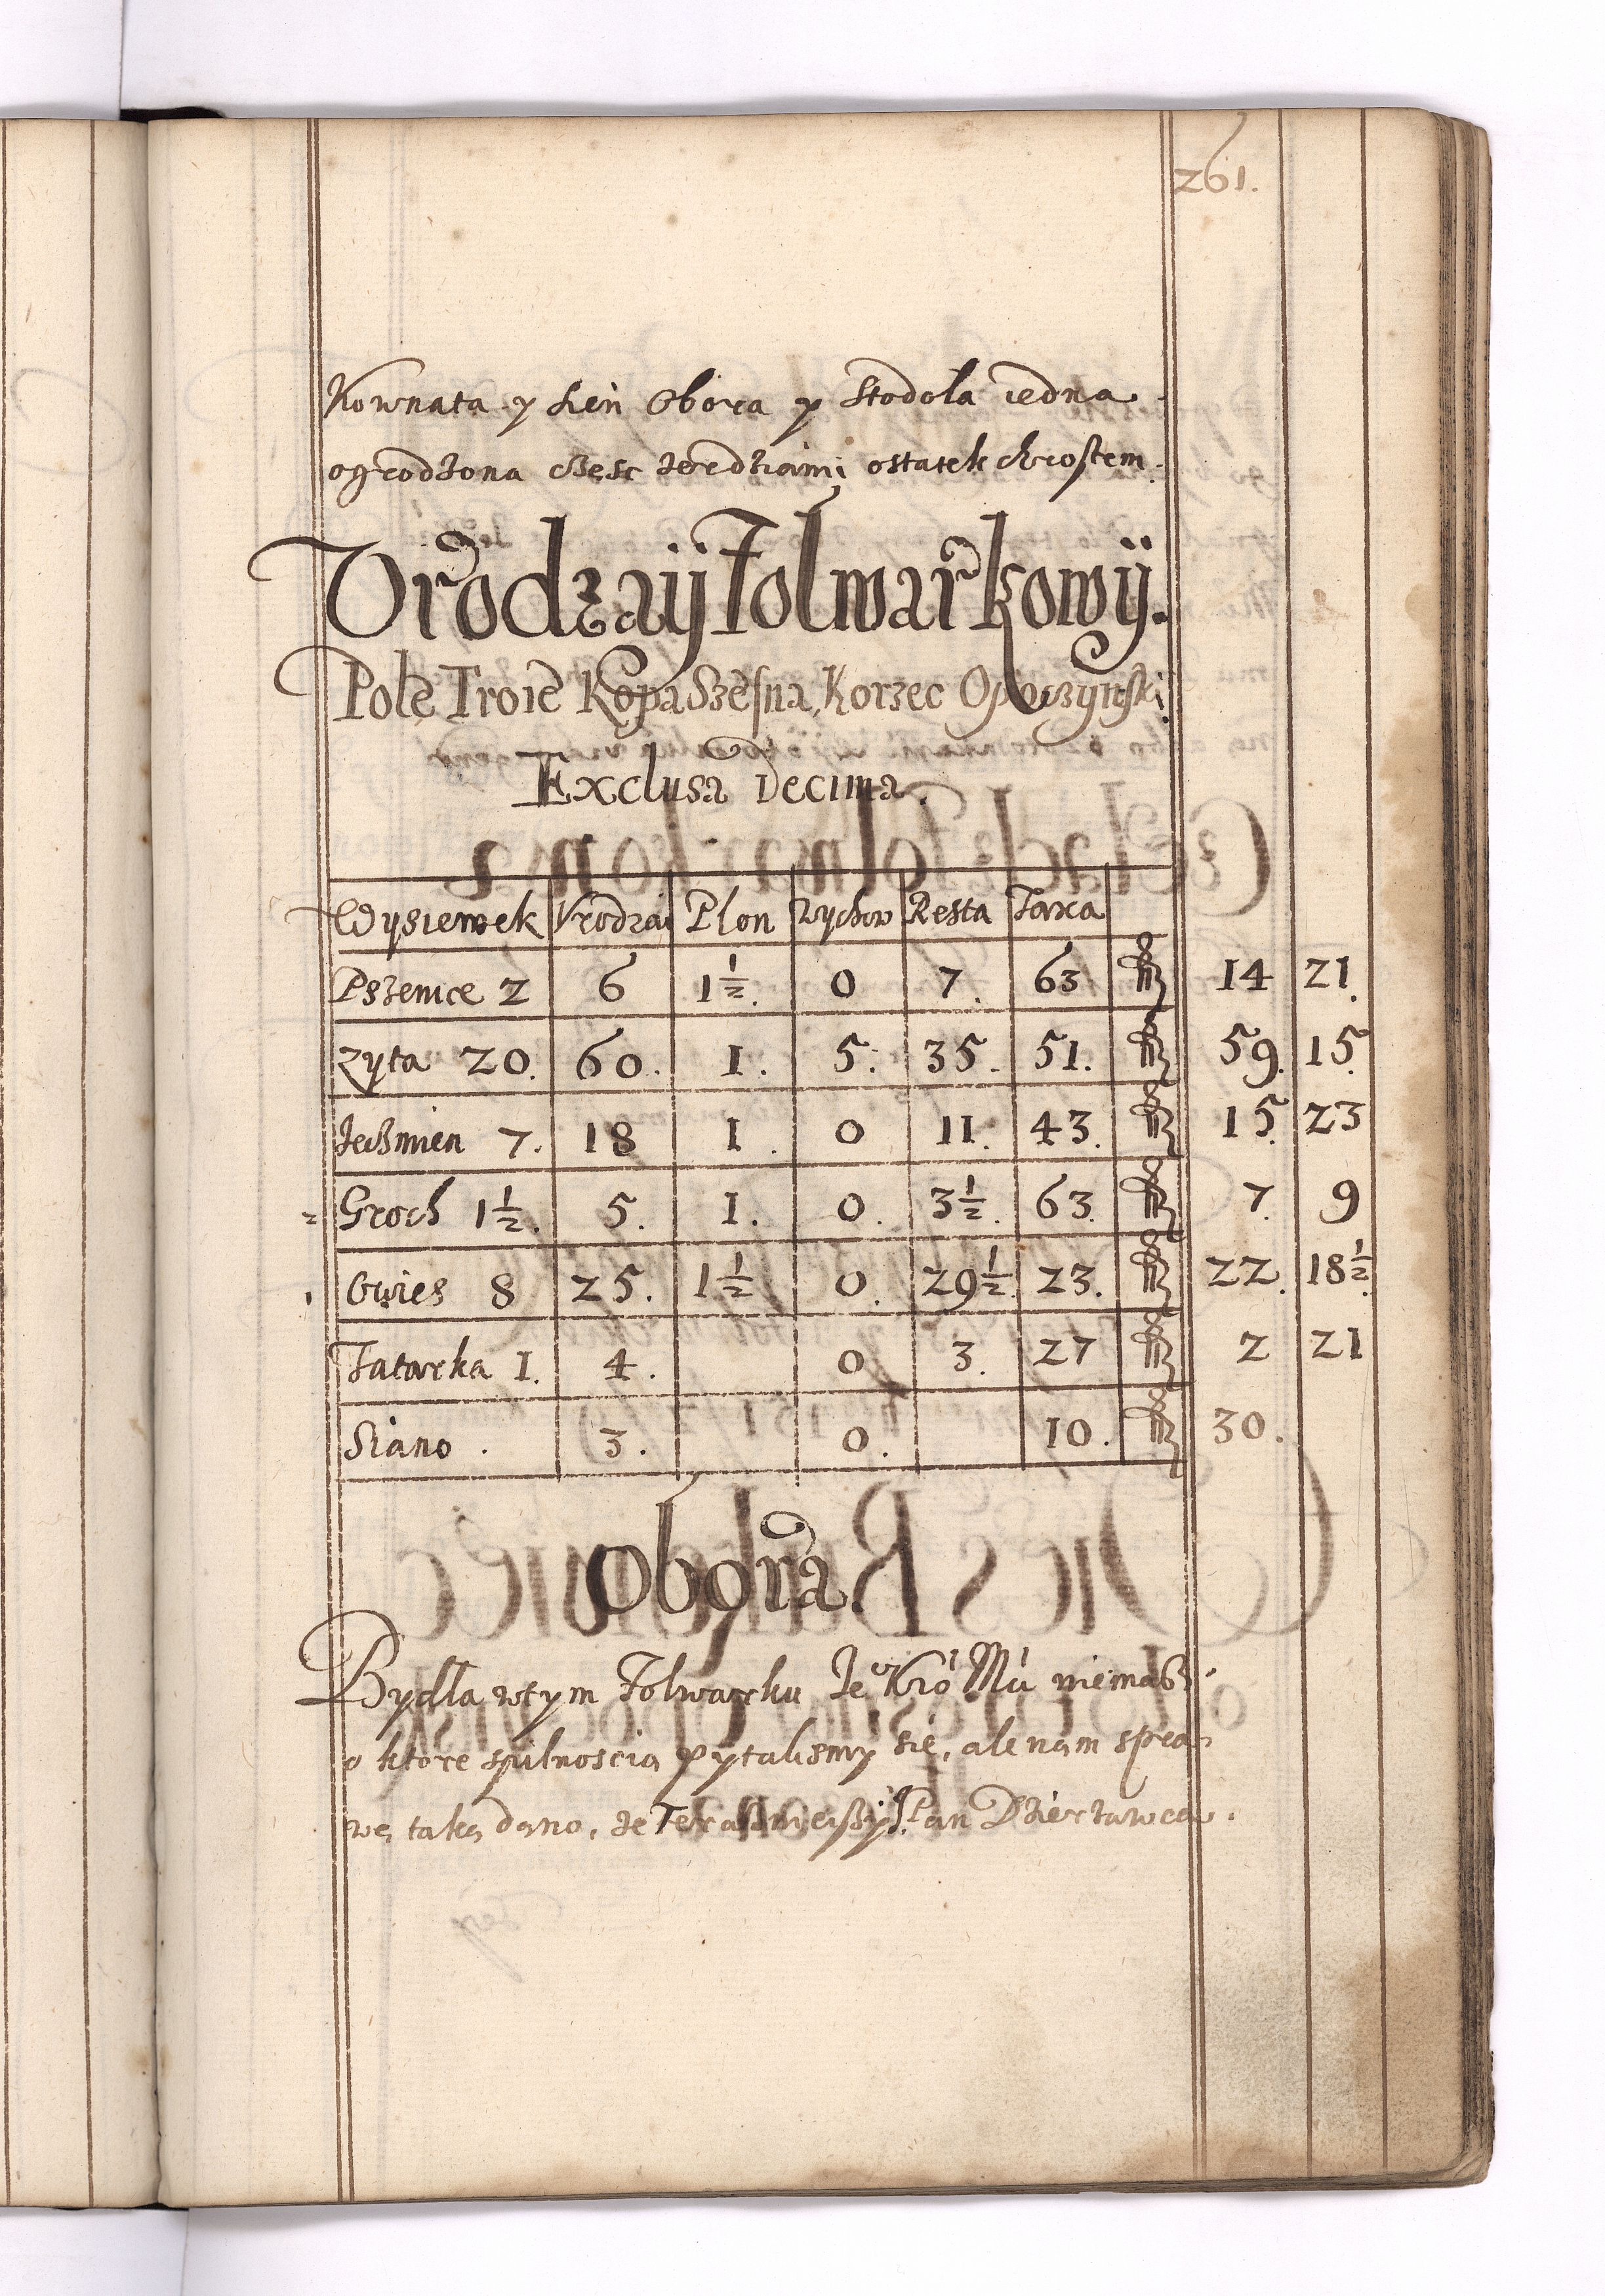 261.
Kownata y sień Obora y Stodoła iedna
ogrodzona część żerdziami ostatek chrostem.
Vrodzaÿ Folwarkowÿ.
Pole Troie Kopa Szesna, Korzec Opoczynski
Exclusa Decima.
Wysiewek Vrodzai Plon Zychow Resta Taxa
Pszenice 2 6 1½. 0 7. 63 14 21.
Zyta 20. 60. 1. 5. 35. 51. 59. 15.
Jeczmien 7. 18 1. 0 11. 43. 15. 23
Groch 1½. 5. 1. 0. 3½. 63. 7. 9
Owies 8 25. 1½ 0. 29½. 23. 22. 18½.
Tatarka 1. 4. 0 3. 27 2 21
Siano. 3. 0. 10. 30.
Obora.
Bydła wtym Folwarku Je Kró Mći niemasz
o ktore spilnoscią pytalismy się, ale nam spra-
wę taką dano, że Teraznieyszÿ Pan Dzierzawca.